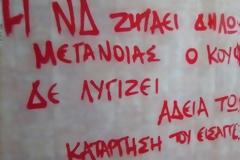 Η ΝΔ ΖΗΤΑΕΙ ΔΗΛΩ
ΜΕΤΑΝΟΙΑΣ Ο ΚΟΥΦ
ΔΕ ΛΥΓΙΖΕΙ
ΑΔΕΙΑ ΤΩ
ΚΑΤΑΡΓΗΣΗ ΤΟΥ ΕΙΣΑΓΓΕ